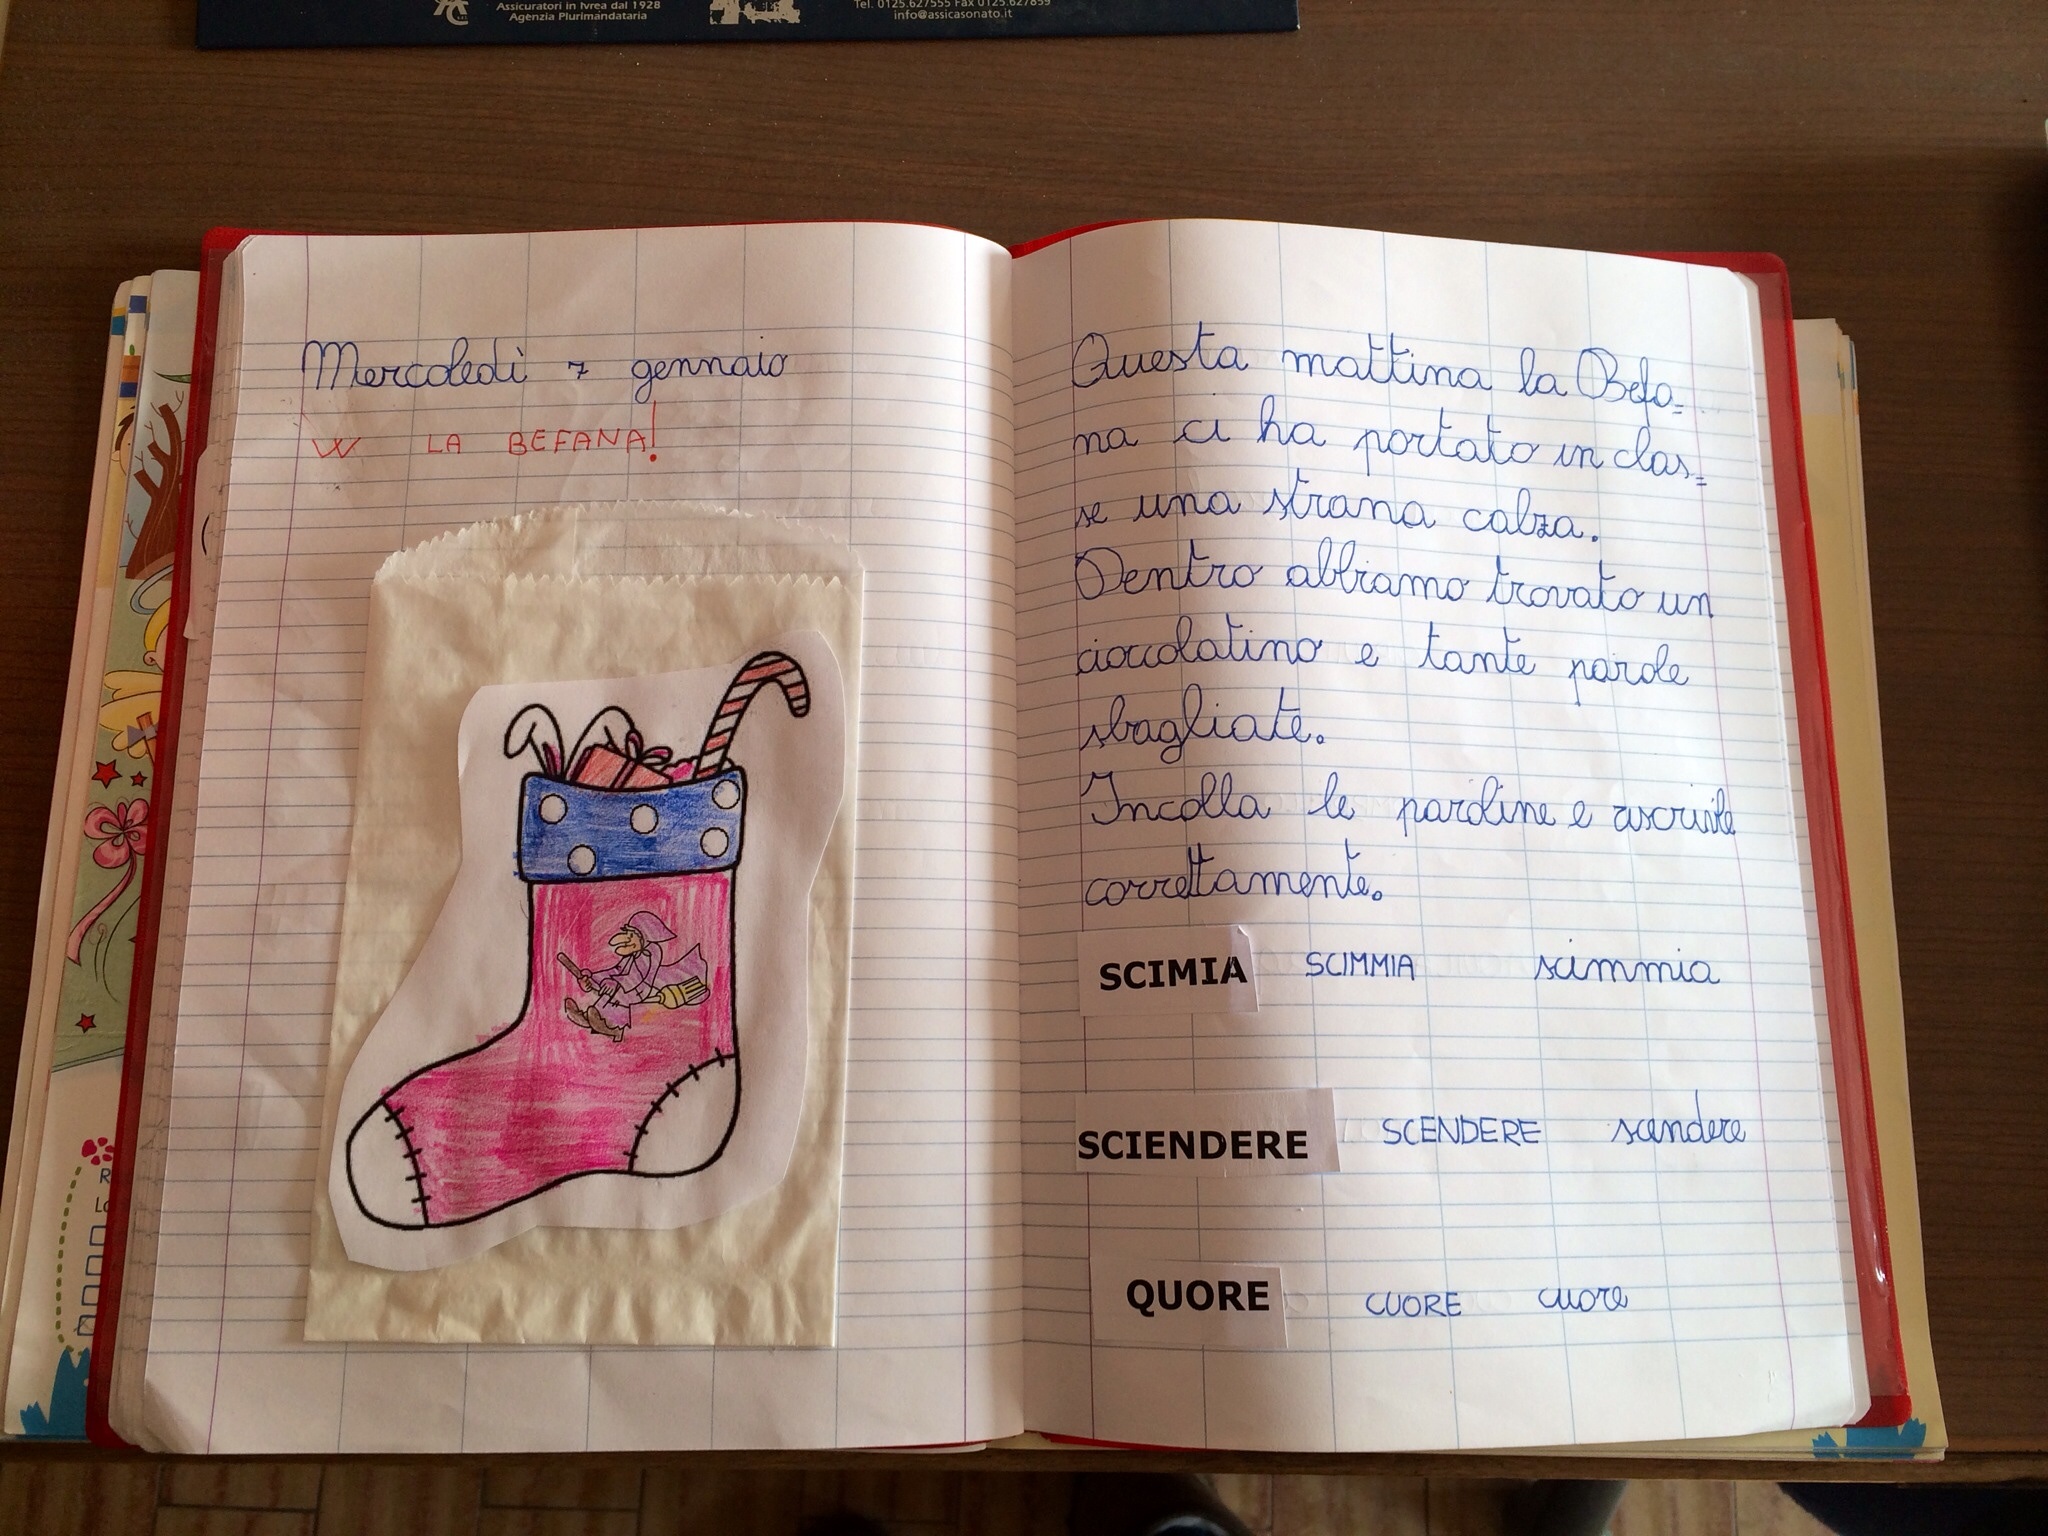 Assicuratori in Ivrea dal 1928
Agenzia Plurimandataria
Tel. 0125.627555 Fax 0125.627859
info@assicasonato.it
Mercoledì 7 gennaio
W LA BEFANA!
Questa mattina la Befa=
na ci ha portato in clas=
se una strana calza.
Dentro abbiamo trovato un
cioccolatino e tante parole
sbagliate.
Incolla le paroline e riscrivile
correttamente.
SCIMIA SCIMMIA scimmia
SCIENDERE SCENDERE scendere
QUORE CUORE cuore